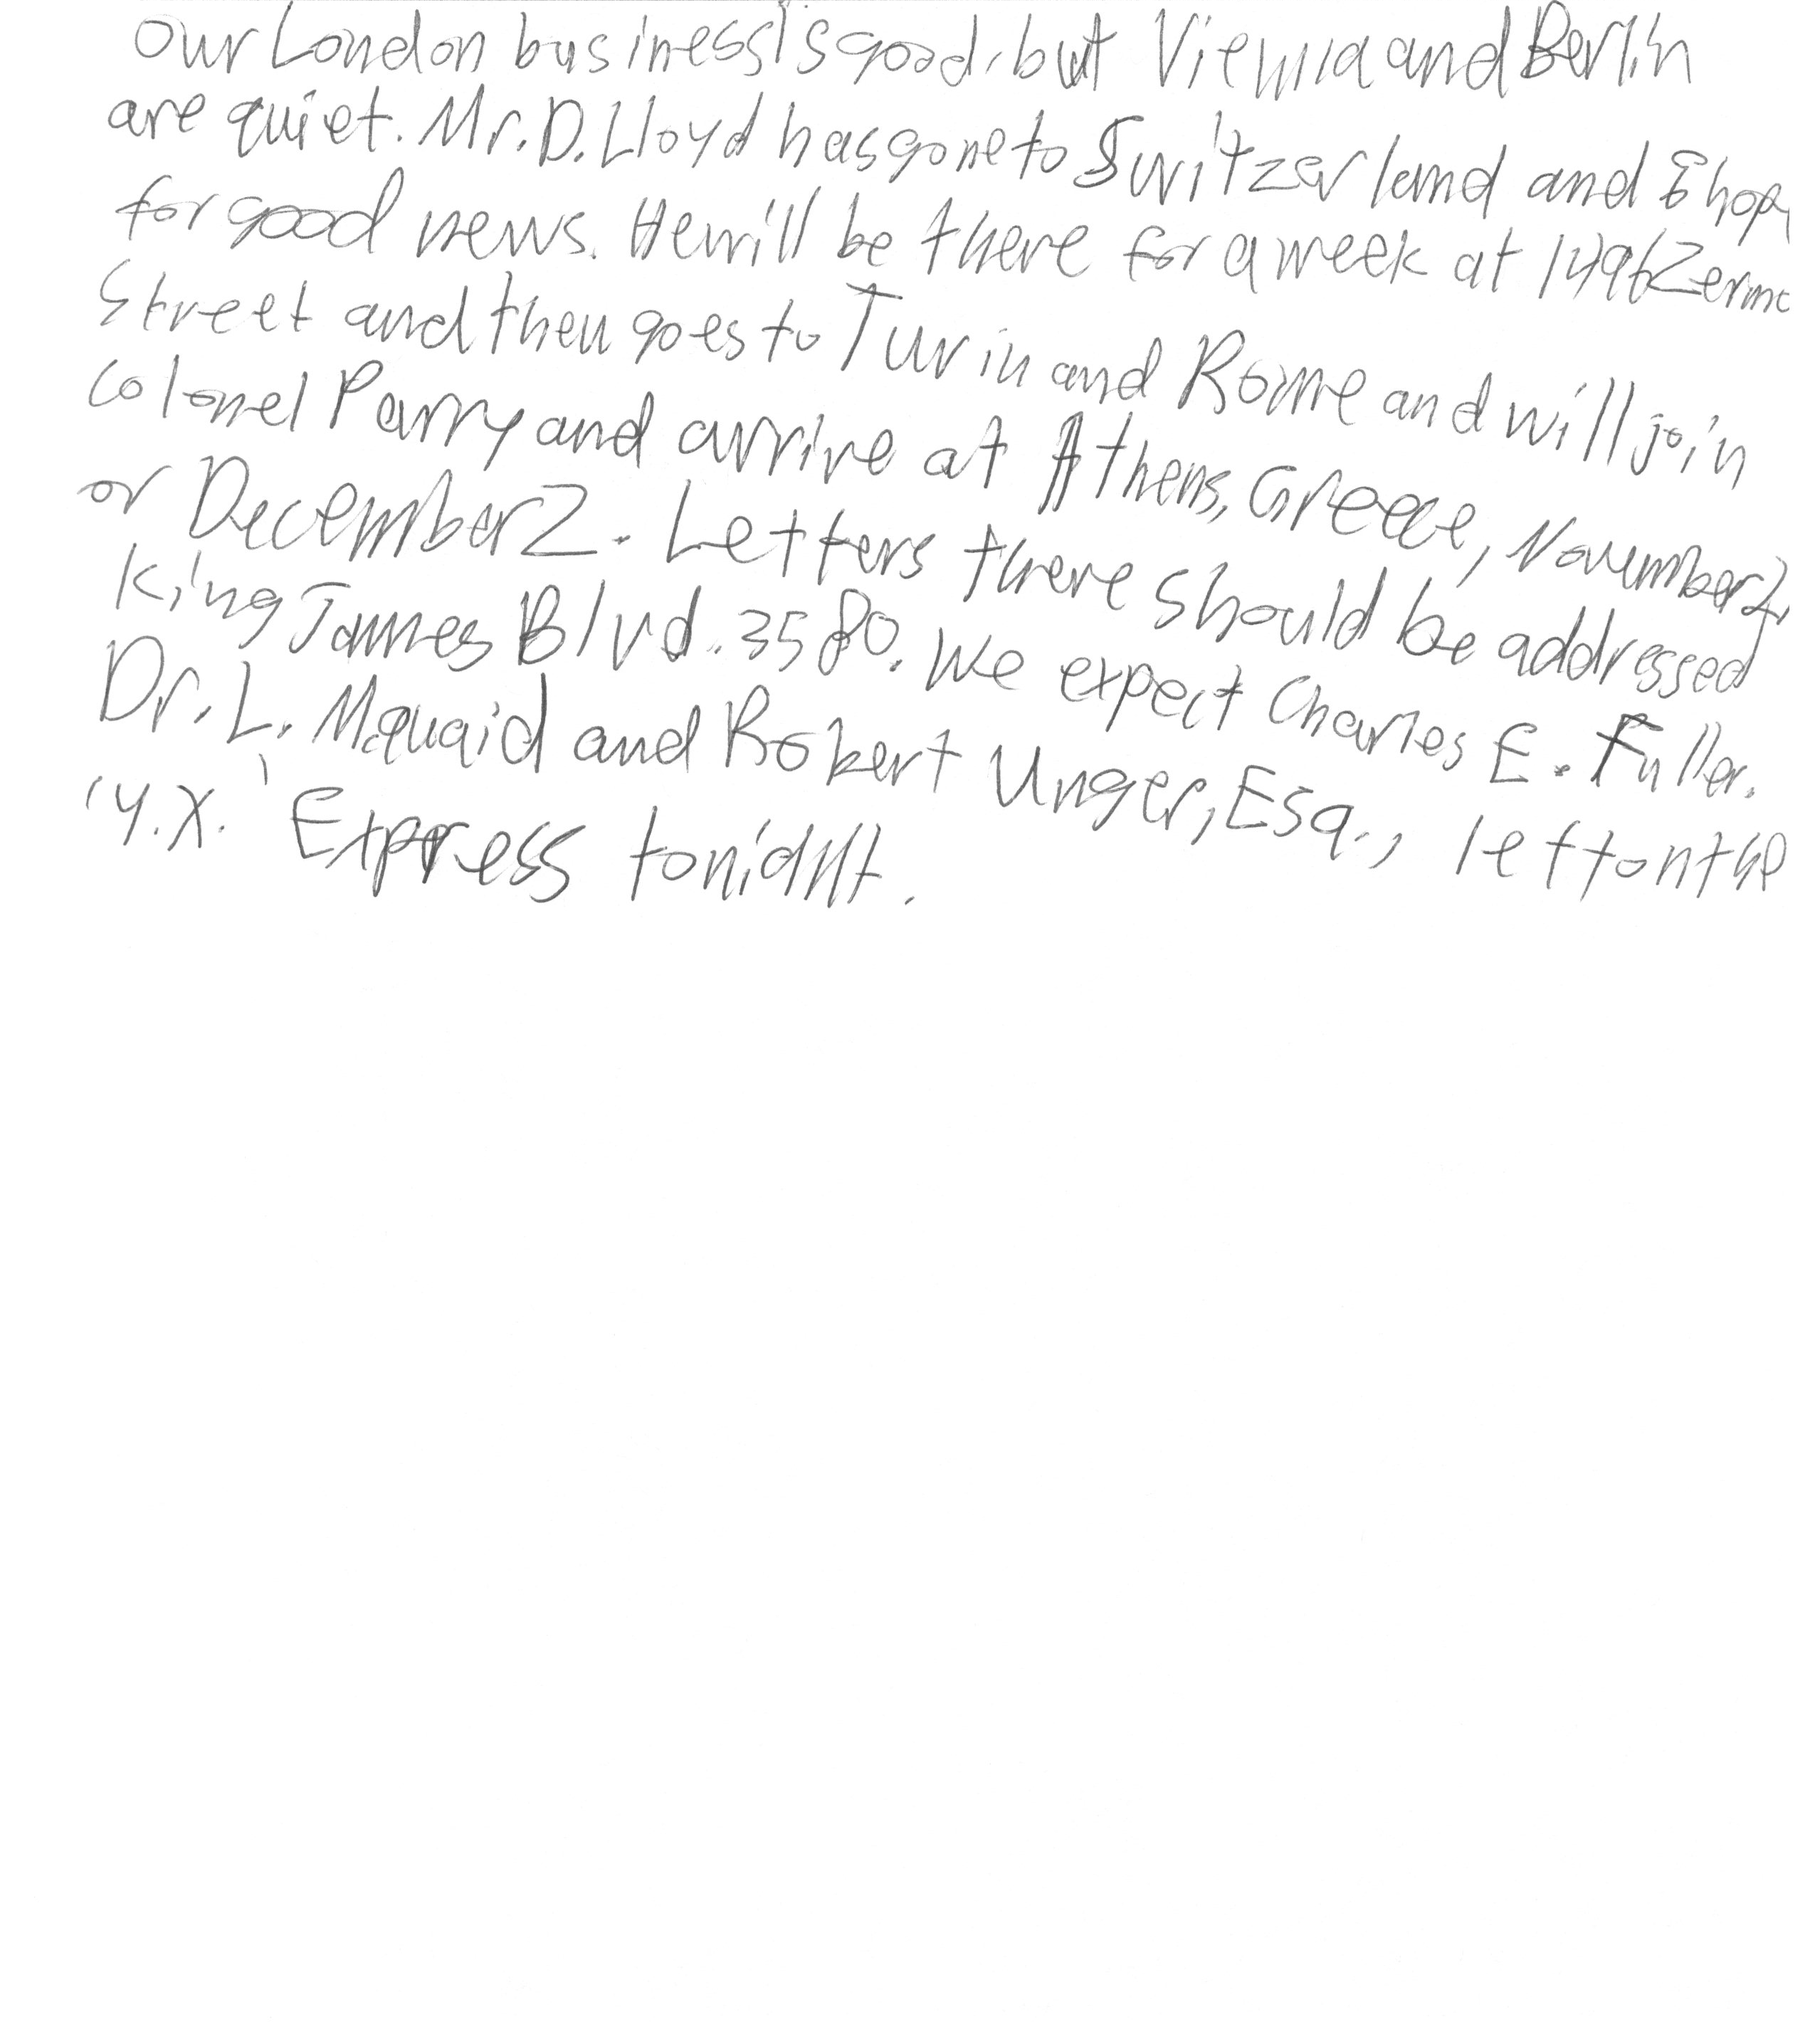 Our London business is good, but Vienna and Berlin
are quiet. Mr. D. Lloyd has gone to Switzerland and I hope
for good news. He will be there for a week at 1496 Zermo
Street and then goes to Turin and Rome and will join
Colonel Parry and arrive at Athens, Greece, November 2,
or December 2. Letters there should be addressed
King James Blvd. 3580. We expect Charles E. Fuller.
Dr. L. McQuaid and Robert Unger, Esq., left on the
'Y.X.' Express tonight.